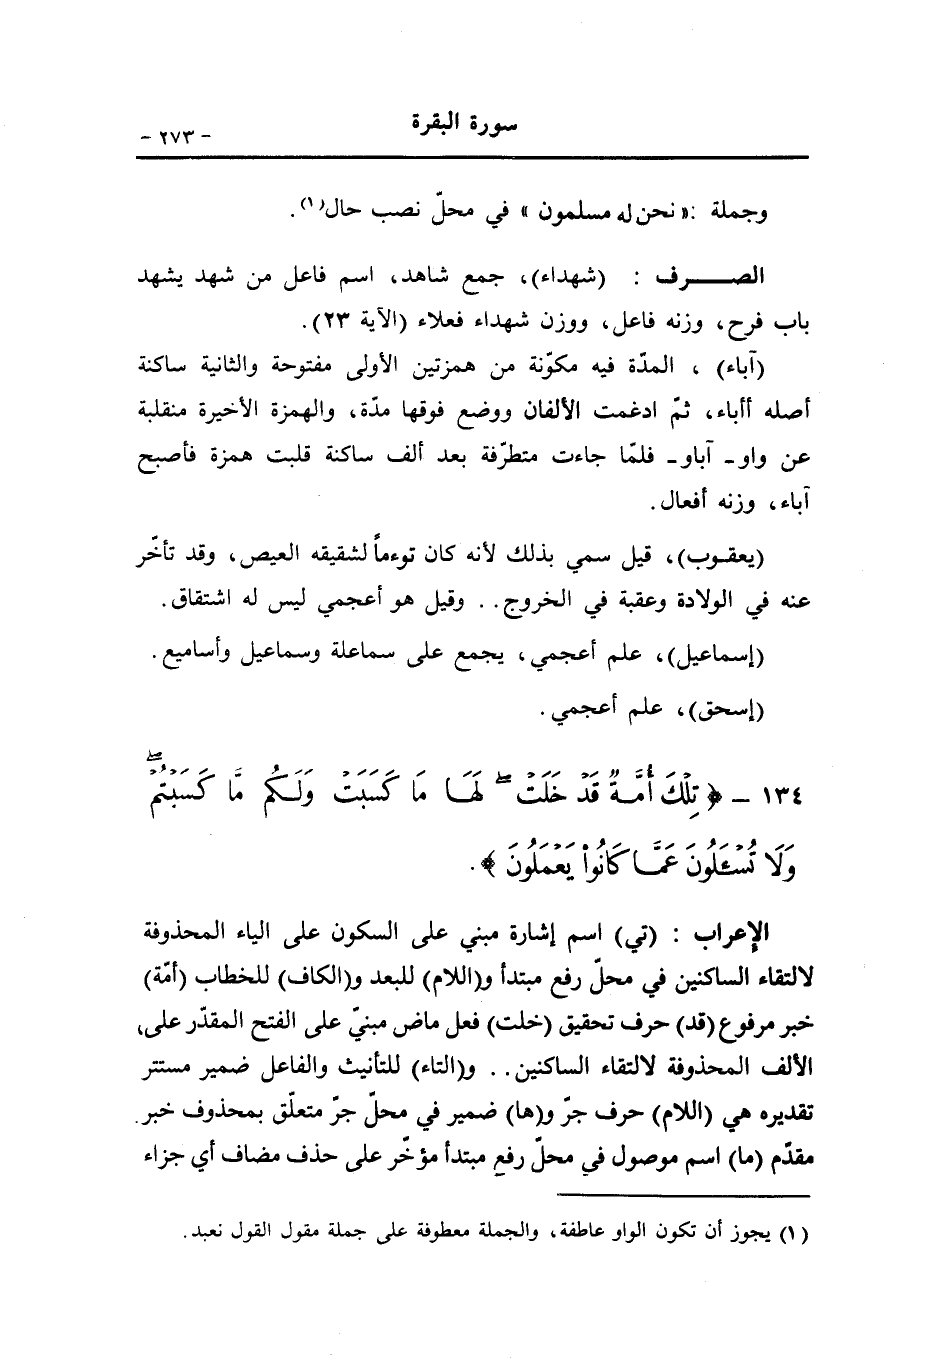 سورة البقرة
- ٢٧٣ -
وجملة :« نحن له مسلمون » في محلّ نصب حال(١).
الصـــرف : (شهداء)، جمع شاهد، اسم فاعل من شهد يشهد
باب فرح، وزنه فاعل، ووزن شهداء فعلاء (الآية ٢٣).
(آباء) ، المدّة فيه مكوّنة من همزتين الأولى مفتوحة والثانية ساكنة
أصله أأباء، ثمّ ادغمت الألفان ووضع فوقها مدّة، والهمزة الأخيرة منقلبة
عن واو ـ آباو ـ فلمّا جاءت متطرّفة بعد ألف ساكنة قلبت همزة فأصبح
آباء، وزنه أفعال.
(يعقـوب)، قيل سمي بذلك لأنه كان توءماً لشقيقه العيص، وقد تأخّر
عنه في الولادة وعقبة في الخروج.. وقيل هو أعجمي ليس له اشتقاق.
(إسماعيل)، علم أعجمي، يجمع على سماعلة وسماعيل وأساميع.
(إسحق)، علم أعجمي.
١٣٤ - ﴿ تِلْكَ أُمَّةٌ قَدْ خَلَتْ ۖ لَهَا مَا كَسَبَتْ وَلَكُم مَّا كَسَبْتُمْ ۖ
وَلَا تُسْـَٔلُونَ عَمَّا كَانُوا۟ يَعْمَلُونَ ﴾.
الإعراب : (تي) اسم إشارة مبني على السكون على الياء المحذوفة
لالتقاء الساكنين في محلّ رفع مبتدأ و(اللام) للبعد و(الكاف) للخطاب (أمّة)
خبر مرفوع (قد) حرف تحقيق (خلت) فعل ماض مبنيّ على الفتح المقدّر على،
الألف المحذوفة لالتقاء الساكنين.. و(التاء) للتأنيث والفاعل ضمير مستتر
تقديره هي (اللام) حرف جرّ و(ها) ضمير في محلّ جرّ متعلّق بمحذوف خبر.
مقدّم (ما) اسم موصول في محلّ رفع مبتدأ مؤخّر على حذف مضاف أي جزاء
(١) يجوز أن تكون الواو عاطفة، والجملة معطوفة على جملة مقول القول نعبد.